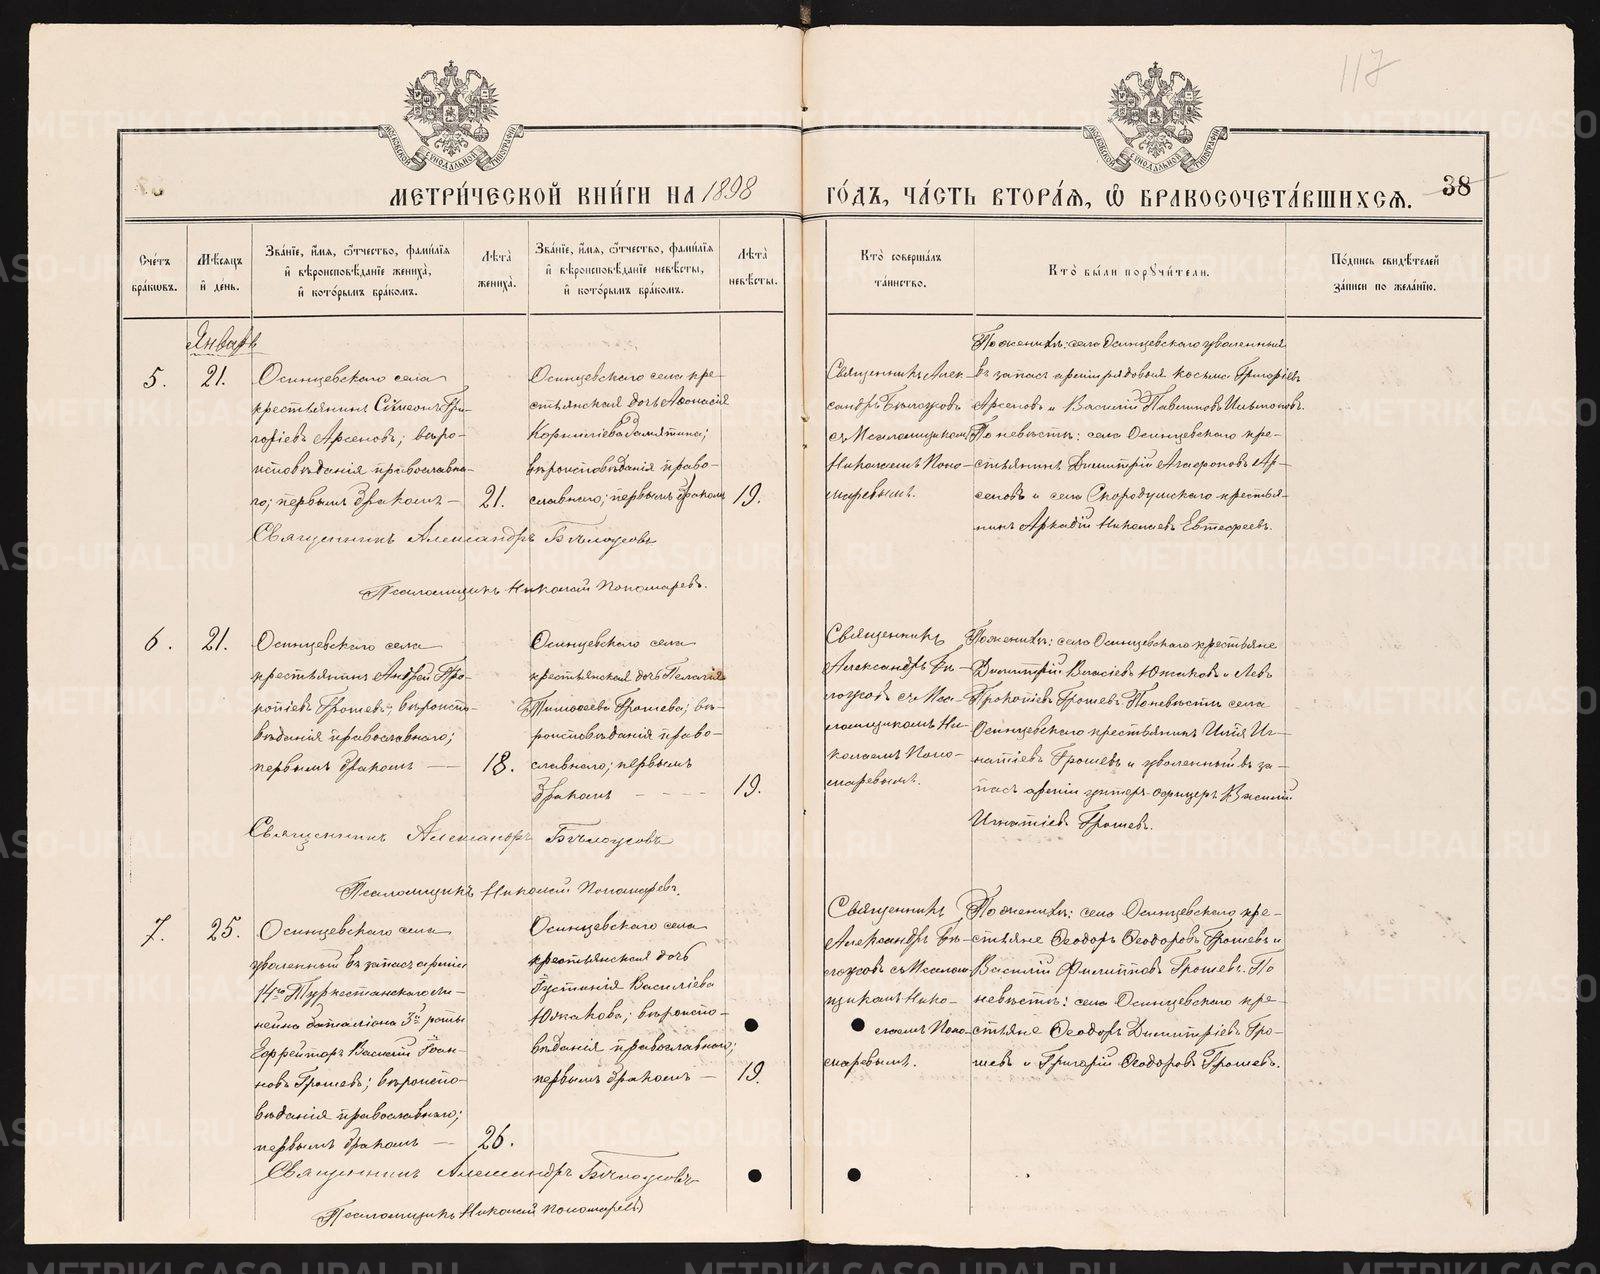 117
МЕТРИЧЕСКОЙ КНИГИ НА 1898 ГОДЪ, ЧАСТЬ ВТОРАЯ, Ѡ БРАКОСОЧЕТАВШИХСЯ. 38
Счетъ браковъ.
Мѣсяцъ и день.
Званіе, имя, отчество, фамилія
и вѣроисповѣданіе жениха,
и которымъ бракомъ.
Лѣта
жениха.
Званіе, имя, отчество, фамилія
и вѣроисповѣданіе невѣсты,
и которымъ бракомъ.
Лѣта
невѣсты.
Кто совершалъ
таинство.
Кто были поручители.
Подпись свидѣтелей
записи по желанію.
Январь
5.
21.
Осинцевскаго села
крестьянинъ Сѵмеонъ Гри-
горіевъ Арсеновъ; вѣро-
исповѣданія православна-
го; первымъ бракомъ —
21.
Осинцевскаго села кре-
стьянская дочь Аѳанасія
Корниліева Замятина;
вѣроисповѣданія право-
славнаго; первымъ бракомъ
19.
Священникъ Алек-
сандръ Бѣлоусовъ
съ Псаломщикомъ
Николаемъ Поно-
маревымъ.
По женихѣ: села Осинцевскаго уволенныя
въ запасъ арміи рядовыя Косьма Григоріевъ
Арсеновъ и Василій Павлиновъ
По невѣстѣ: села Осинцевскаго кре-
стьянинъ Димитрій Агафоновъ Ар-
сеновъ и села Скородумскаго крестья-
нинъ Аркадій Николаевъ Евтефеевъ.
Священникъ Александръ Бѣлоусовъ
Псаломщикъ Николай Пономаревъ.
6.
21.
Осинцевскаго села
крестьянинъ Андрей Про-
копіевъ Грошевъ; вѣроиспо-
вѣданія православнаго;
первымъ бракомъ —
18.
Осинцевскаго села
крестьянская дочь Пелагія
Тимоѳеева Грошева; вѣ-
роисповѣданія право-
славнаго; первымъ
бракомъ - - - -
19.
Священникъ
Александръ Бѣ-
лоусовъ съ Пса-
ломщикомъ Ни-
колаемъ Поно-
маревымъ.
По женихѣ: села Осинцевскаго крестьяне
Димитрій Власіевъ Южаковъ и Левъ
Прокопіевъ Грошевъ. По невѣстѣ села
Осинцевскаго крестьянинъ Илія Иг-
натіевъ Грошевъ и уволенный въ за-
пасъ арміи унтеръ-офицеръ Василій
Игнатіевъ Грошевъ.
Священникъ Александръ Бѣлоусовъ
Псаломщикъ Николай Пономаревъ.
7.
25.
Осинцевскаго села
уволенный въ запасъ арміи
14го Туркестанскаго Ли-
нейна баталіона 3й роты
Ефрейторъ Василій Іоан-
новъ Грошевъ; вѣроиспо-
вѣданія православнаго;
первымъ бракомъ —
26.
Осинцевскаго села
крестьянская дочь
Іустинія Василіева
Южакова; вѣроиспо-
вѣданія православнаго;
первымъ бракомъ —
19.
Священникъ
Александръ Бѣ-
лоусовъ съ Псалом-
щикомъ Нико-
лаемъ Поно-
маревымъ.
По женихѣ: села Осинцевскаго кре-
стьяне Ѳеодоръ Ѳеодоровъ Грошевъ и
Василій Филипповъ Грошевъ. По
невѣстѣ: села Осинцевскаго кре-
стьяне Ѳеодоръ Димитріевъ Гро-
шевъ и Григорій Ѳеодоровъ Грошевъ.
Священникъ Александръ Бѣлоусовъ
Псаломщикъ Николай Пономаревъ
METRIKI.GASO-URAL.RU